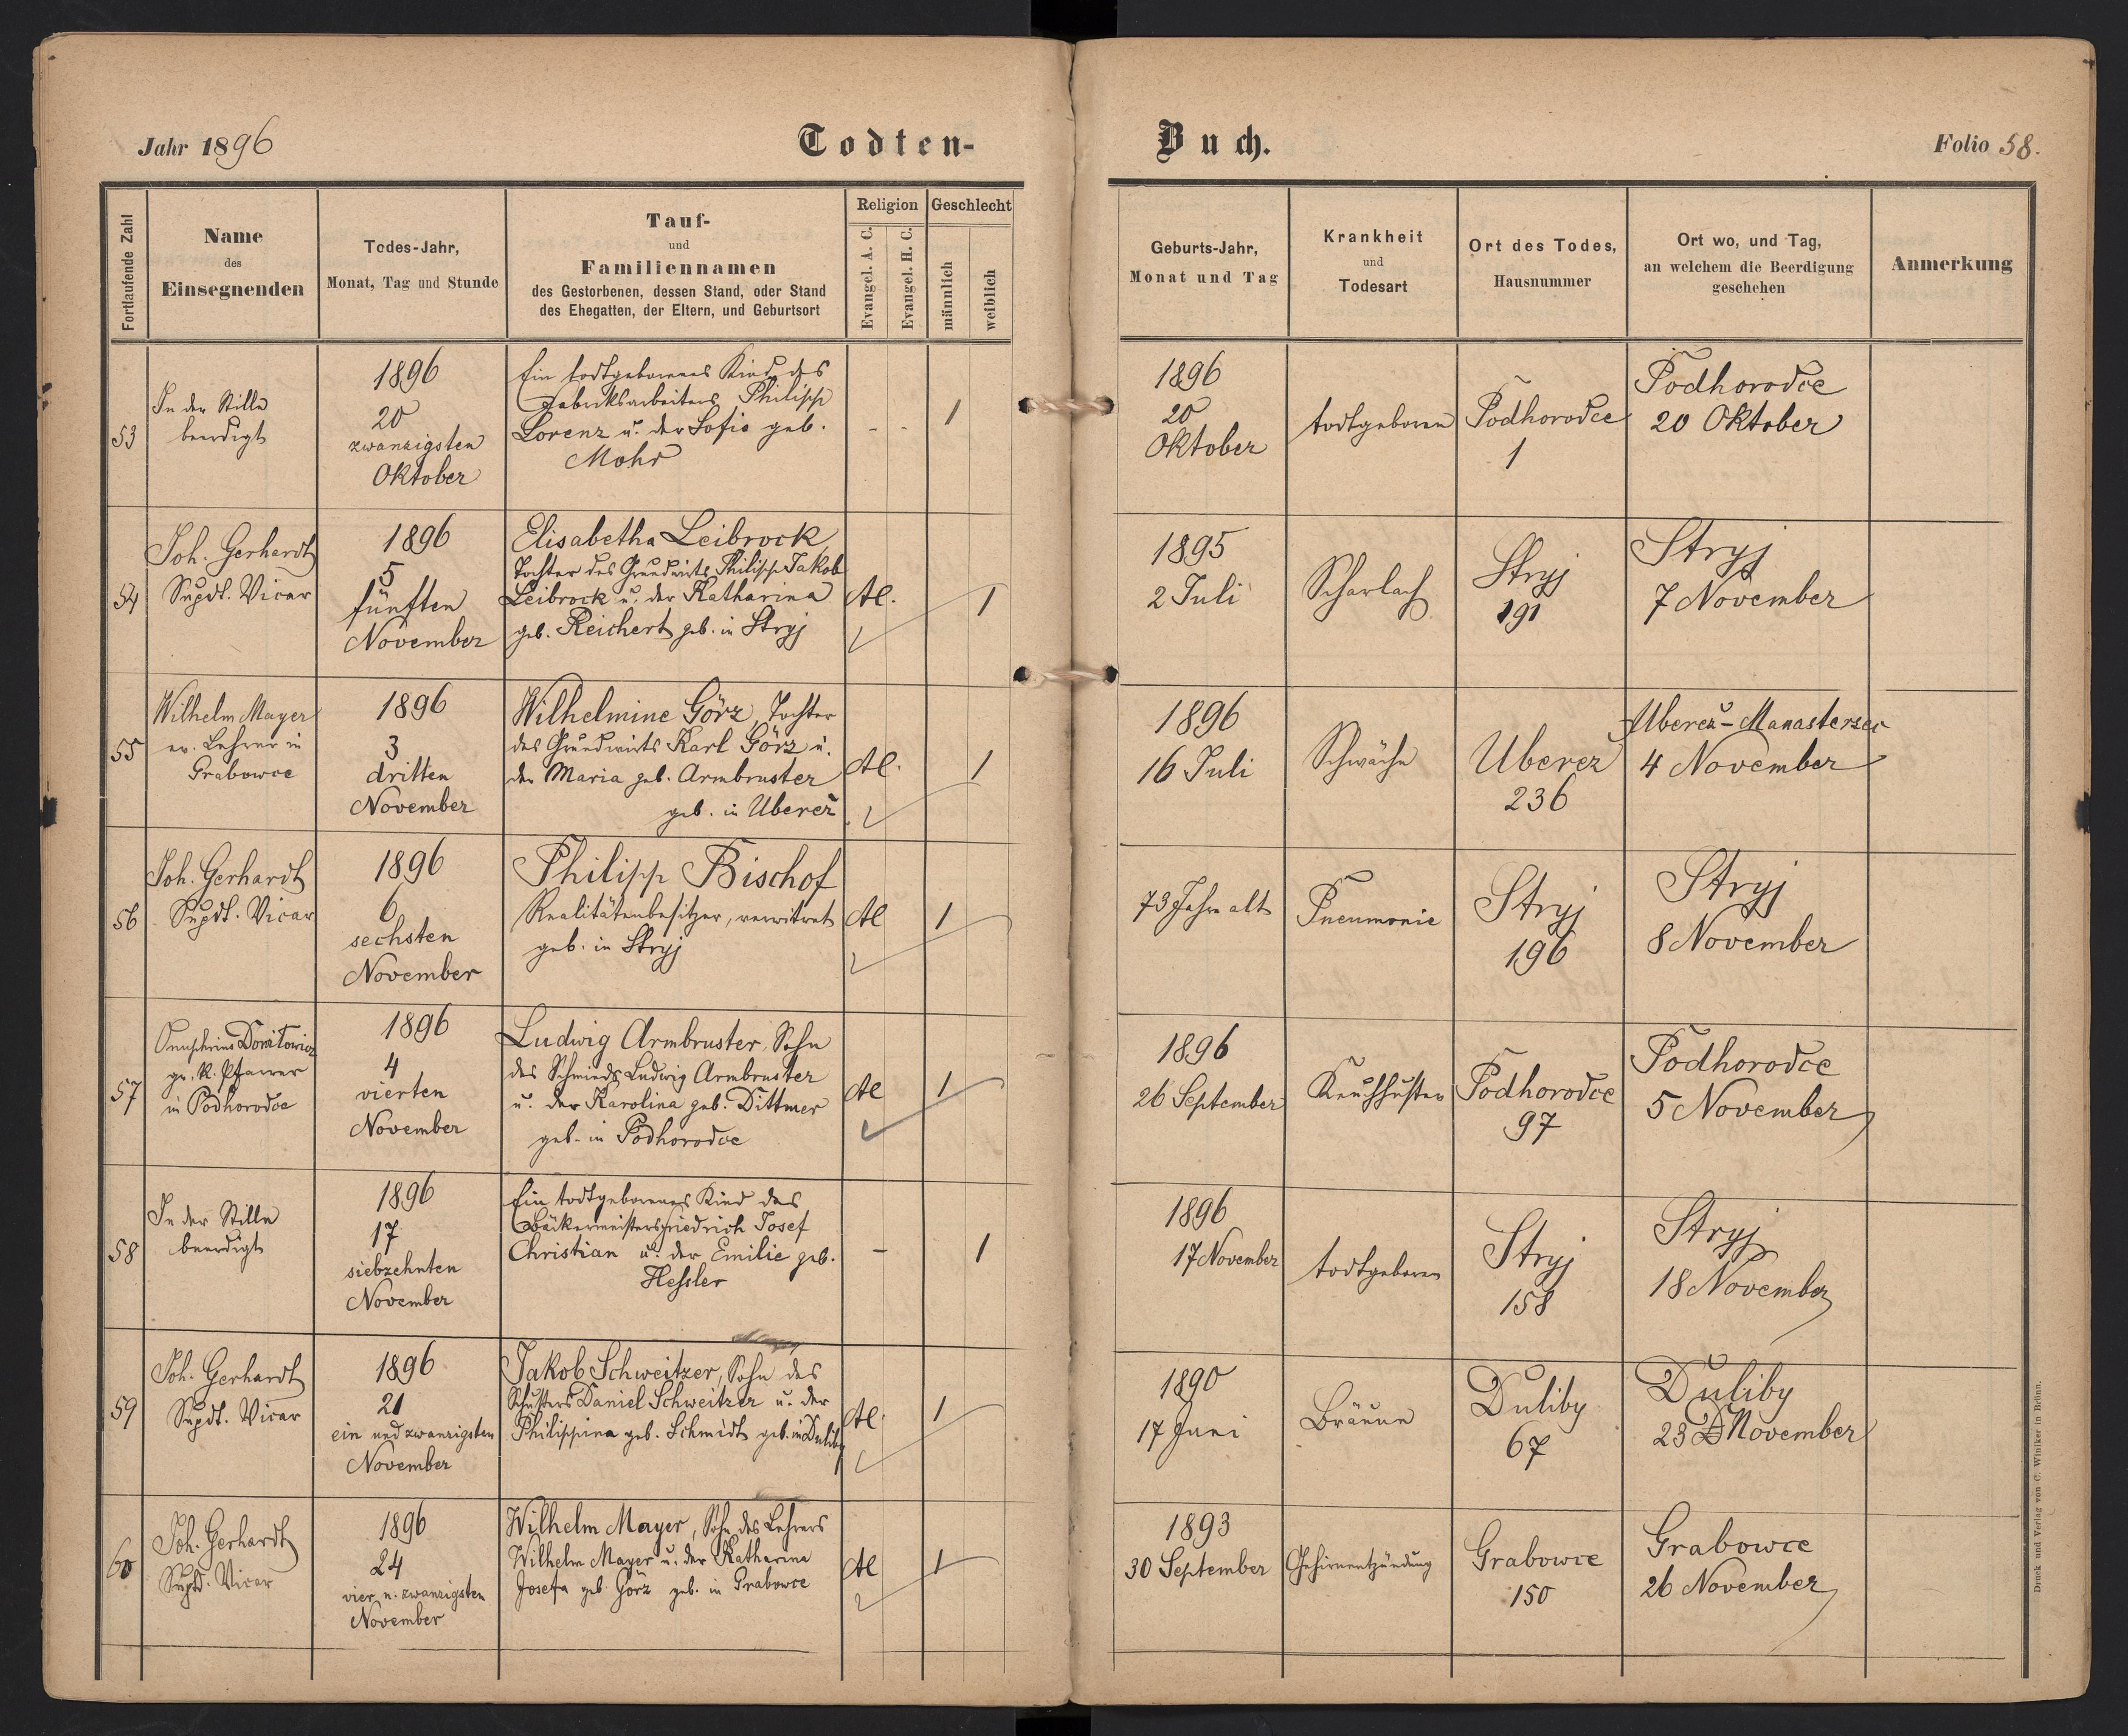 Jahr 1896
Todten-
Buch.
Folio 58.
Fortlaufende Zahl
Name
des
Einsegnenden
Todes-Jahr,
Monat, Tag und Stunde
Tauf-
und
Familiennamen
des Gestorbenen, dessen Stand, oder Stand
des Ehegatten, der Eltern, und Geburtsort
Religion
Evangel. A. C.
Evangel. H. C.
Geschlecht
männlich
weiblich
Geburts-Jahr,
Monat und Tag
Krankheit
und
Todesart
Ort des Todes,
Hausnummer
Ort wo, und Tag,
an welchem die Beerdigung
geschehen
Anmerkung
53
In der Stille
beerdigt
1896
20
zwanzigsten
Oktober
Ein todtgeborenes Kind des
Fabriksarbeiters Philipp
Lorenz u. der Sofie geb.
Mohr
- -
1
1896
20
Oktober
todtgeboren
Podhorodce
1
Podhorodce
20 Oktober
54
Joh. Gerhardt
Supdt. Vicar
1896
5
fünften
November
Elisabetha Leibrock
Tochter des Grundwirts Philipp Jakob
Leibrock u. der Katharina
geb. Reichert geb. in Stryj
Al.
1
1895
2 Juli
Scharlach
Stryj
191
Stryj
7 November
55
Wilhelm Mayer
ev. Lehrer in
Grabowce
1896
3
dritten
November
Wilhelmine Görz, Tochter
des Grundwirts Karl Görz u.
der Maria geb. Armbruster
geb. in Uberez
Al.
1
1896
16 Juli
Schwäche
Uberez
236
Uberez-Manasterzec
4 November
56
Joh. Gerhardt
Supdt. Vicar
1896
6
sechsten
November
Philipp Bischof
Realitätenbesitzer, verwitwet
geb. in Stryj
Al
1
73 Jahre alt
Pneumonie
Stryj
196
Stryj
8 November
57
gr. k. Pfarrer
in Podhorodce
1896
4
vierten
November
Ludwig Armbruster, Sohn
des Schmieds Ludwig Armbruster
u. der Karolina geb. Dittmer
geb. in Podhorodce
Al
1
1896
26 September
Keuchhusten
Podhorodce
97
Podhorodce
5 November
58
In der Stille
beerdigt
1896
17
siebzehnten
November
Ein todtgeborenes Kind des
Bäckermeisters Friedrich Josef
Christian u. der Emilie geb.
Heßler
-
1
1896
17 November
todtgeboren
Stryj
158
Stryj
18 November
59
Joh. Gerhardt
Supdt. Vicar
1896
21
ein und zwanzigsten
November
Jakob Schweitzer, Sohn des
Schusters Daniel Schweitzer u. der
Philippina geb. Schmidt geb. in Duliby
Al.
1
1890
17 Juni
Bräune
Duliby
67
Duliby
23 November
60
Joh. Gerhardt
Supdt. Vicar
1896
24
vier u. zwanzigsten
November
Wilhelm Mayer, Sohn des Lehrers
Wilhelm Mayer u. der Katharina
Josefa geb. Görz geb. in Grabowce
Al
1
1893
30 September
Gehirnentzündung
Grabowce
150
Grabowce
26 November
Druck und Verlag von C. Winiker in Brünn.